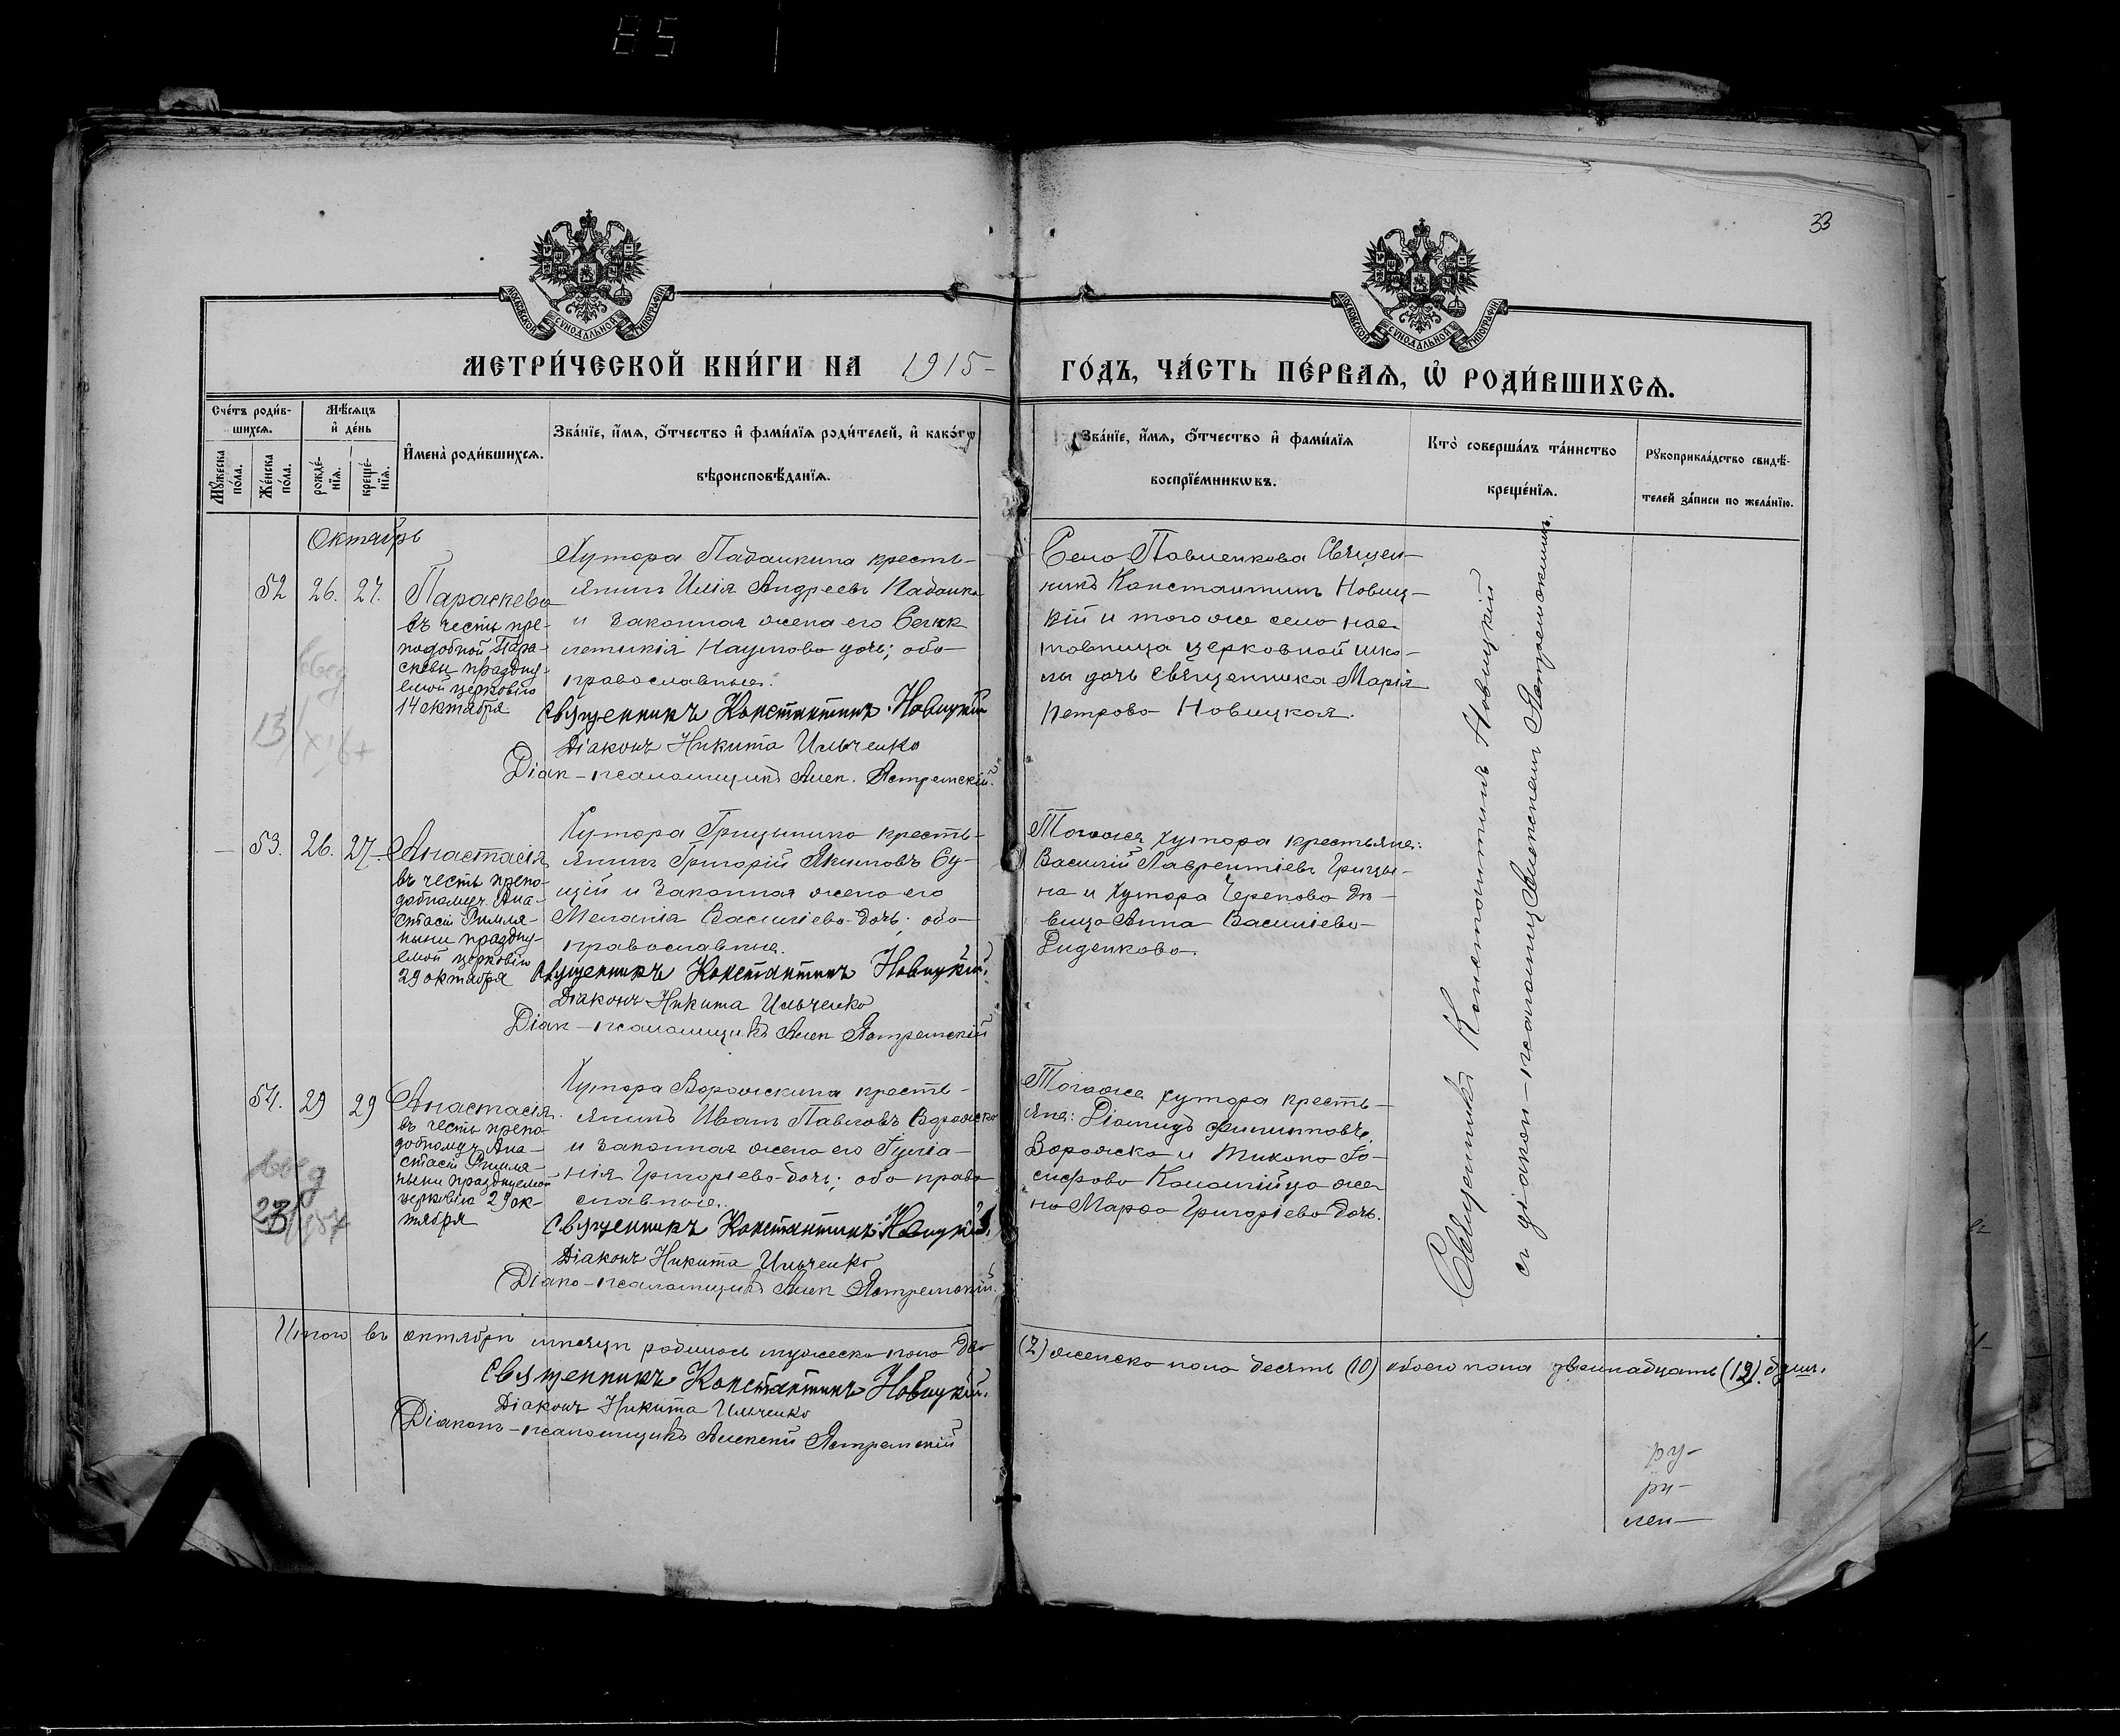 85
33
МОСКОВСКОЙ СѴНОДАЛЬНОЙ ТИПОГРАФІИ
МОСКОВСКОЙ СѴНОДАЛЬНОЙ ТИПОГРАФІИ
МЕТРИ́ЧЕСКОЙ КНИ́ГИ НА 1915- ГО́ДЪ, ЧА́СТЬ ПЕ́РВАѦ, Ѽ РОДИ́ВШИХСѦ.
Сче́тъ роди́в-
шихсѧ.
Мѣ́сѧцъ
и҆ де́нь
Мꙋ́жеска
по́ла.
Же́нска
по́ла.
рожде́-
нїѧ.
креще́-
нїѧ.
И҆мена̀ роди́вшихсѧ.
Зва́нїе, и҆́мѧ, ѻ҆́тчество и҆ фами́лїѧ роди́телей, и҆ како́гѡ
вѣроисповѣ́данїѧ.
Зва́нїе, и҆́мѧ, ѻ҆́тчество и҆ фами́лїѧ
воспрїе́мникѡвъ.
Кто̀ соверша́лъ та́инство
креще́нїѧ.
Рꙋкоприкла́дство свидѣ́-
телей за́писи по жела́нїю.
Октябрь
52 26. 27.
Параскева
въ честь пре-
подобной Пара-
скевы праздну-
емой церковію
14 октября
Хутора Падалкина кресть-
янинъ Илія Андреевъ Падалка
и законная жена его
Наумова дочь; оба
православные.
Священникъ Константинъ Новицкій
Діаконъ Никита Ильченко
Діак-псаломщикъ Алек. Ястремскій.
Село Павленкова Священ-
никъ Константинъ Новиц-
кій и того же села нас-
тавница церковной шко-
лы дочь священника Марія
Петрова Новицкая.
13
53. 26. 27.
Анастасія
въ честь препо-
добномуч. Ана-
стасіи Римля-
ныни праздну-
емой церковію
29 октября
Хутора Грицынина кресть-
янинъ Григорій Якимовъ Су-
щій и законная жена его
Меланія Василіева дочь; оба
православные.
Священникъ Константинъ Новицкій.
Діаконъ Никита Ильченко
Діак-псаломщикъ Алек Ястремскій
Тогоже хутора крестьяне:
Василій Лаврентіевъ Грицы-
на и хутора Черепова дѣ-
вица Анна Василіева
Диденкова.
54. 29 29
Анастасія
въ честь препо-
добномуч. Ана-
стасіи Римля-
ныни празднуемой
церковію 29 ок-
тября
Хутора Ворожскина кресть-
янинъ Иванъ Павловъ Ворожско
и законная жена его Гуліа-
нія Григоріева дочь; оба право
славные.
Священникъ Константинъ Новицкій.
Діаконъ Никита Ильченко
Діако-псаломщикъ Алек Ястремскій.
Тогоже хутора кресть-
яне: Діомидъ Филипповъ
Ворожско и Тихона Іо-
сифова Коломійца же-
на Марфа Григоріева дочь.
Священникъ Константинъ Новицкій
съ діакон-псаломщ Алексѣем Ястремскимъ.
Итого въ октябрѣ мѣсяцѣ родилось мужеска пола два (2) женска пола десять (10) обоего пола двѣнадцать (12) душъ.
Священникъ Константинъ Новицкій.
Діаконъ Никита Ильченко
Діаконъ-псаломщикъ Алексѣй Ястремскій
ру-
ри-
лен-